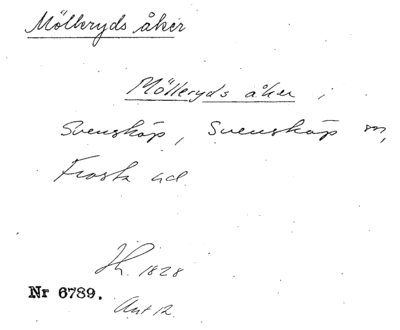 Möllеryds åker
Mölleryds åker i
Svensköp, Svensköp sn,
Frosta hd
Jh. 1828
Nr 6789.
Akt 12.